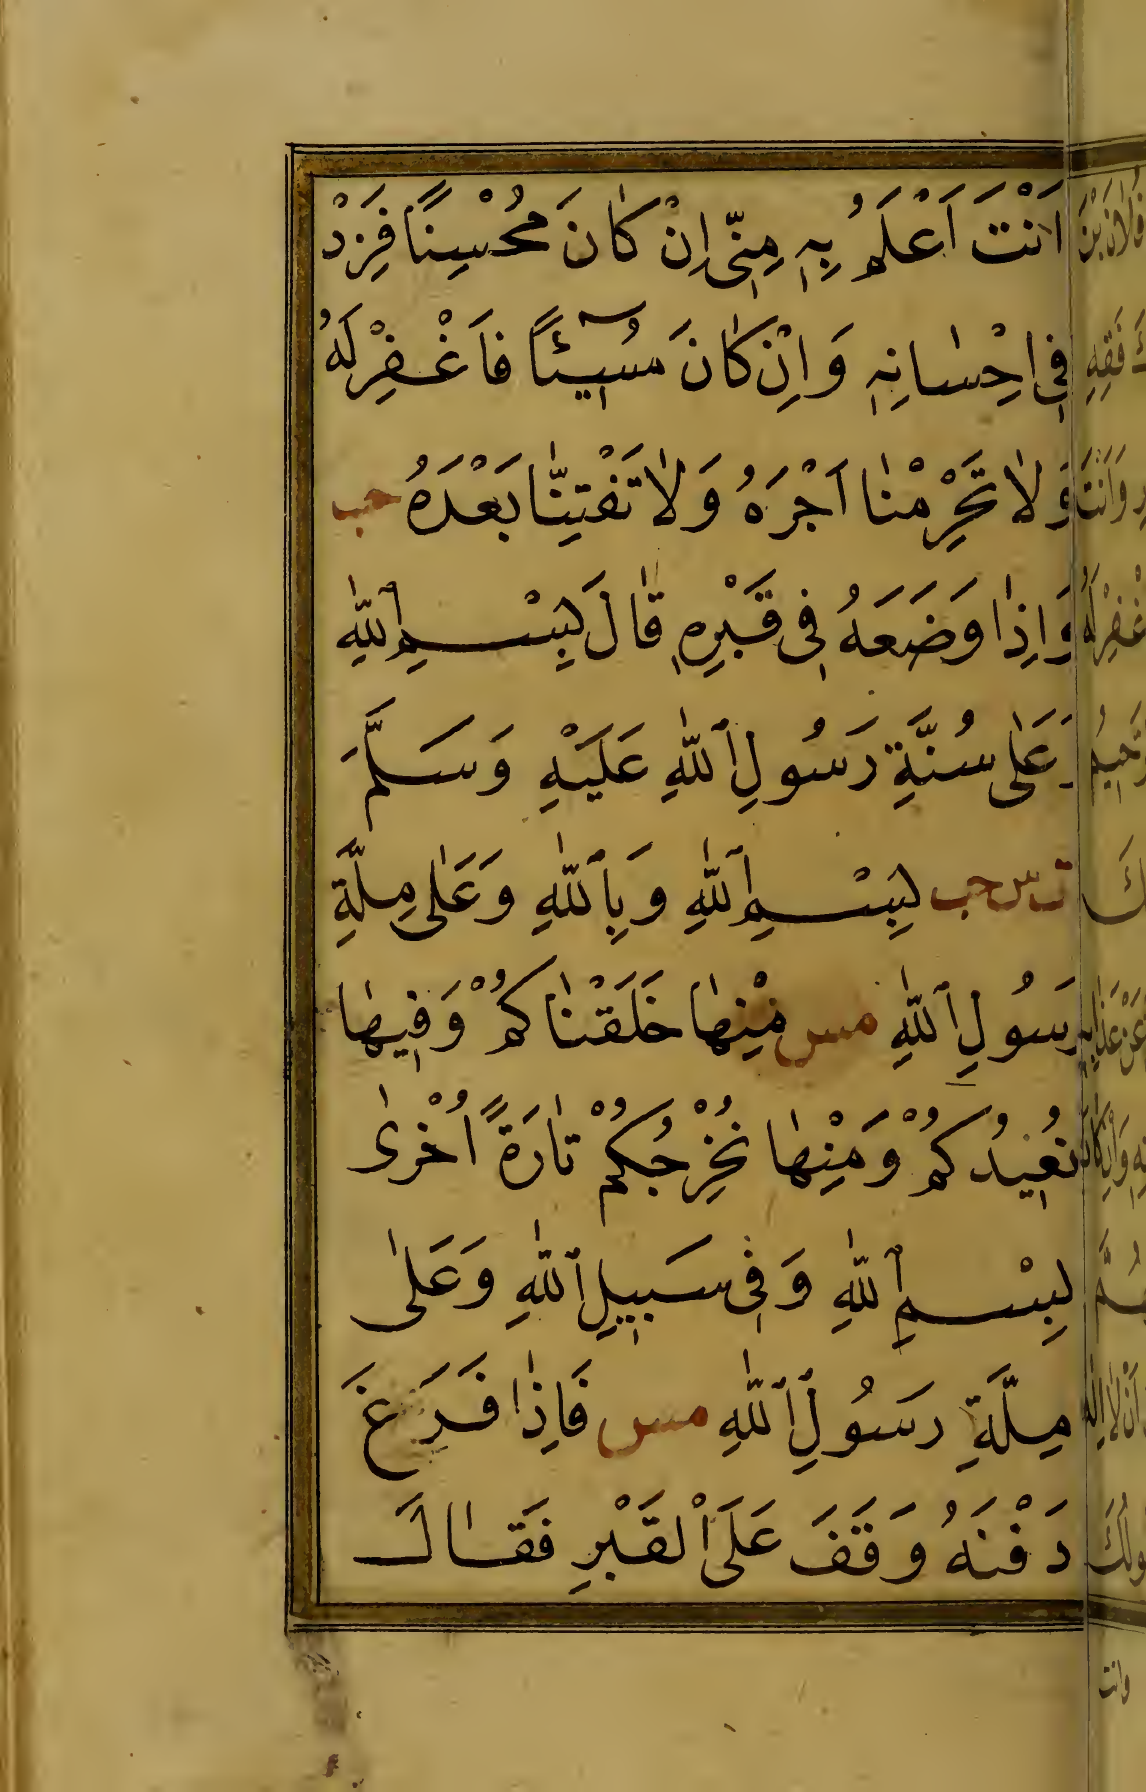 اَنْتَ اَعْلَمُ بِهٖ مِنّٖى اِنْ كٰانَ مُحْسِنًا فَزِدْ
فٖى اِحْسٰانِهٖ وَاِنْ كٰانَ مُسٖٓيئًا فَاَغْفِرْ لَهُ
وَلٰا تَحْرِمْنٰا اَجْرَهُ وَلٰا تَفْتِنّٰا بَعْدَهُ حب
وَاِذٰا وَضَعَهُ فٖى قَبْرِهٖ قٰالَ بِسْمِ ٱللّٰهِ
وَعَلٰى سُنَّةِ رَسُولِ ٱللّٰهِ عَلَيْهِ وَسَلَّمَ
ت س حب بِسْمِ ٱللّٰهِ وَبِٱللّٰهِ وَعَلٰى مِلَّةِ
رَسُولِ ٱللّٰهِ مس مِنْهٰا خَلَقْنٰاكُمْ وَفٖيهٰا
نُعٖيدُكُمْ وَمِنْهٰا نُخْرِجُكُمْ تٰارَةً اُخْرٰى
بِسْمِ ٱللّٰهِ وَفٖى سَبٖيلِ ٱللّٰهِ وَعَلٰى
مِلَّةِ رَسُولِ ٱللّٰهِ مس فَاِذٰا فَرَغَ
دَفْنَهُ وَقَفَ عَلَى ٱلْقَبْرِ فَقٰالَ
وانت